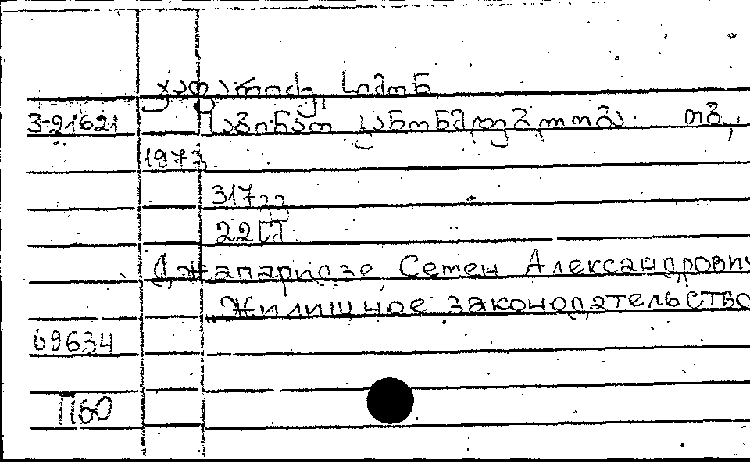 ჯაფარიძე სიმონ
3-21621 საბინაო კანონმდებლობა. თბ.,
1973
317 გვ
22 სმ
Джапаридзе Семен Александрович
Жилищное законодательство
69634
1160